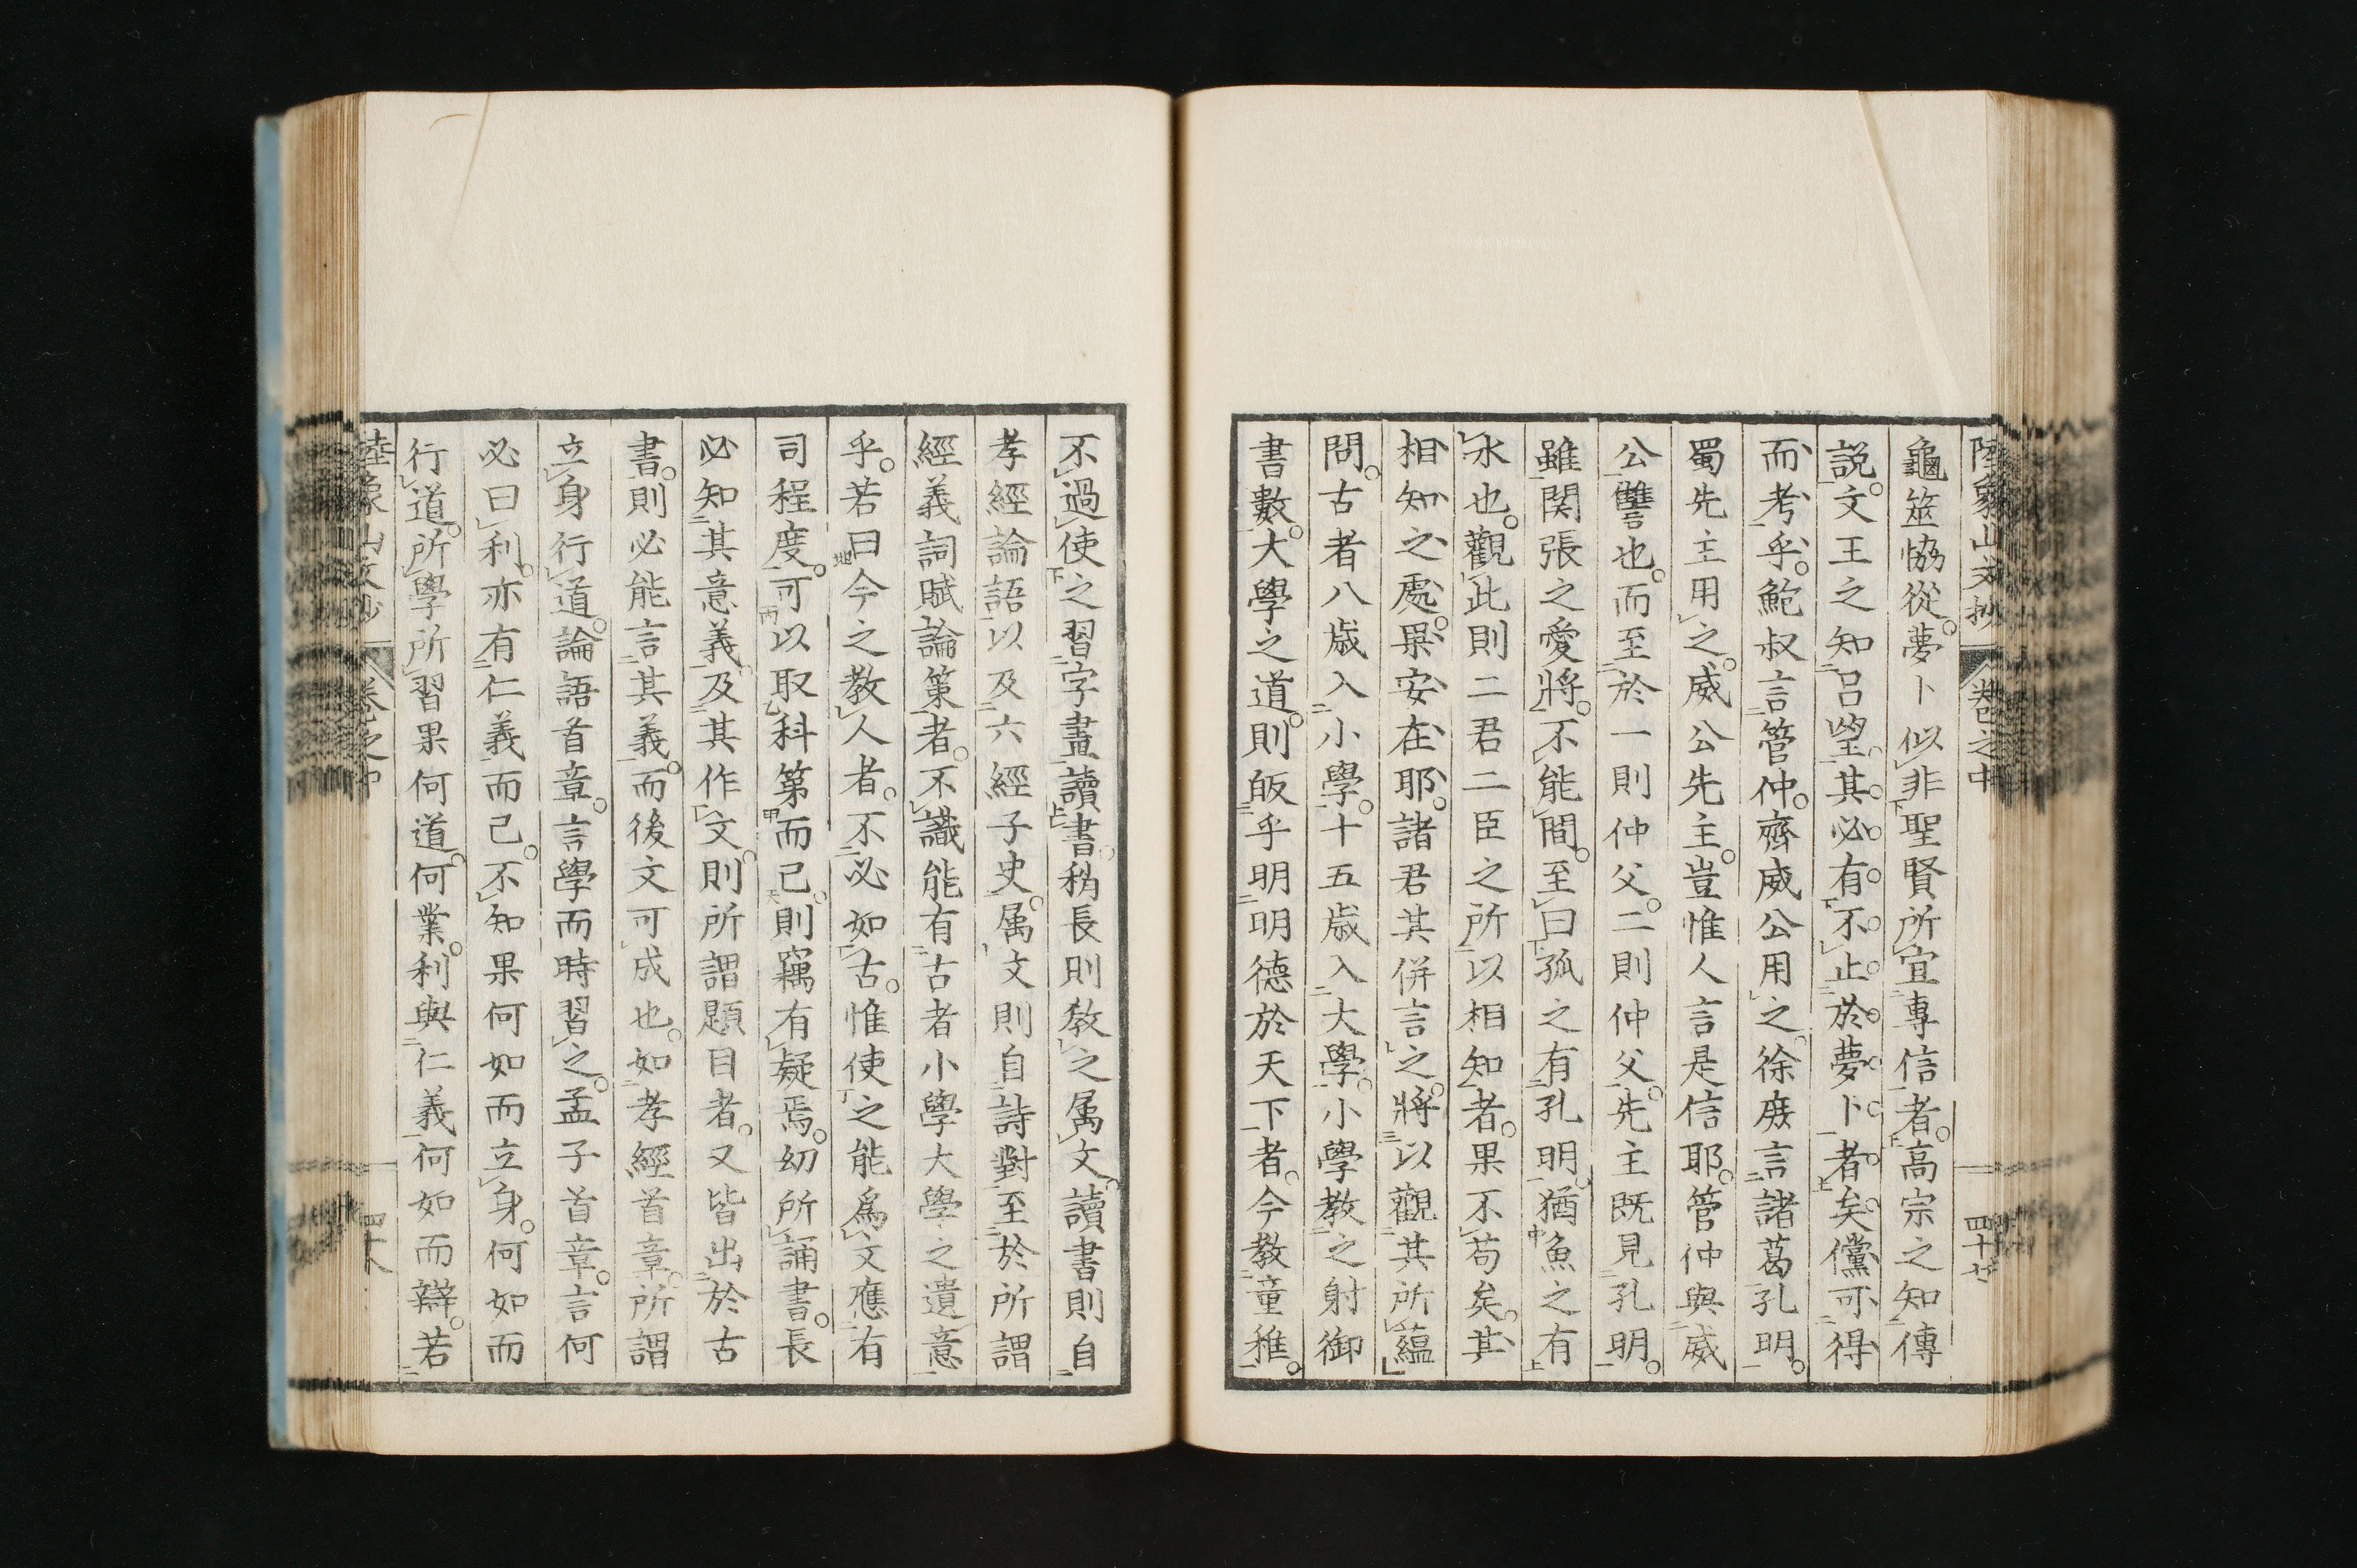 陸象山文抄 卷之中 四十七
龜筮恊從。夢卜似非聖賢所宜專信者。高宗之知傅
説。文王之知呂望。其必有不止於夢卜者矣。儻可得
而考乎。鮑叔言管仲。齊威公用之。徐庻言諸葛孔明。
蜀先主用之。威公先主。豈惟人言是信耶。管仲與威
公讐也。而至於一則仲父。二則仲父。先主既見孔明。
雖関張之愛將。不能間。至曰孤之有孔明。猶魚之有
水也。觀此則二君二臣之所以相知者。果不苟矣。其
相知之處。果安在耶。諸君其併言之。將以觀其所蘊
問。古者八歳入小學。十五歳入大學。小學教之射御
書數。大學之道。則皈乎明明德於天下者。今教童稚。
不過使之習字畫讀書。稍長則教之属文。讀書則自
孝經論語以及六經子史。属文則自詩對至於所謂
經義詞賦論策者。不識能有古者小學大學之遺意
乎。若曰今之教人者。不必如古。惟使之能爲文應有
司程度。可以取科第而已。則竊有疑焉。幼所誦書。長
必知其意義。及其作文。則所謂題目者。又皆出於古
書。則必能言其義。而後文可成也。如孝經首章。所謂
立身行道。論語首章。言學而時習之。孟子首章。言何
必曰利。亦有仁義而已。不知果何如而立身。何如而
行道。所學所習果何道。何業。利與仁義何如而辯。若
陸象山文抄 卷之中 四十八